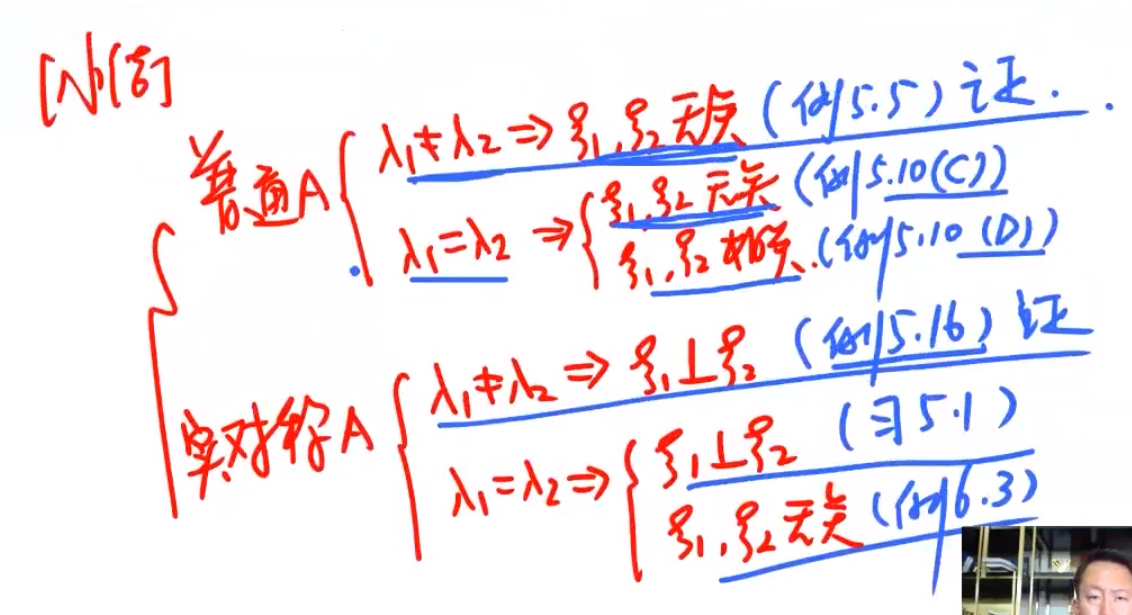 [小结]
普通A
λ₁≠λ₂ ⇒ ξ₁,ξ₂ 无关 (例5.5) 证.
λ₁=λ₂ ⇒ ξ₁,ξ₂ 无关 (例5.10(C))
ξ₁,ξ₂ 相关. (例5.10(D))
实对称A
λ₁≠λ₂ ⇒ ξ₁⊥ξ₂ (例5.16) 证
λ₁=λ₂ ⇒ ξ₁⊥ξ₂ (习5.1)
ξ₁,ξ₂ 无关 (例6.3)